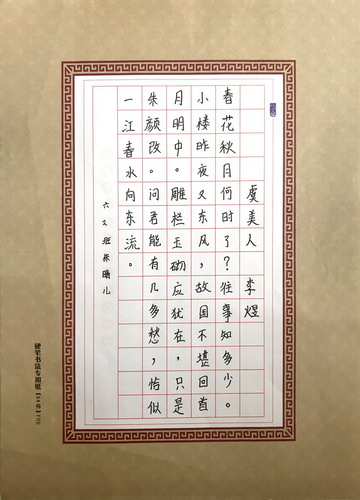 虞美人 李煜
春花秋月何时了？往事知多少。
小楼昨夜又东风，故国不堪回首
月明中。雕栏玉砌应犹在，只是
朱颜改。问君能有几多愁，恰似
一江春水向东流。
六2班
硬笔书法专用纸